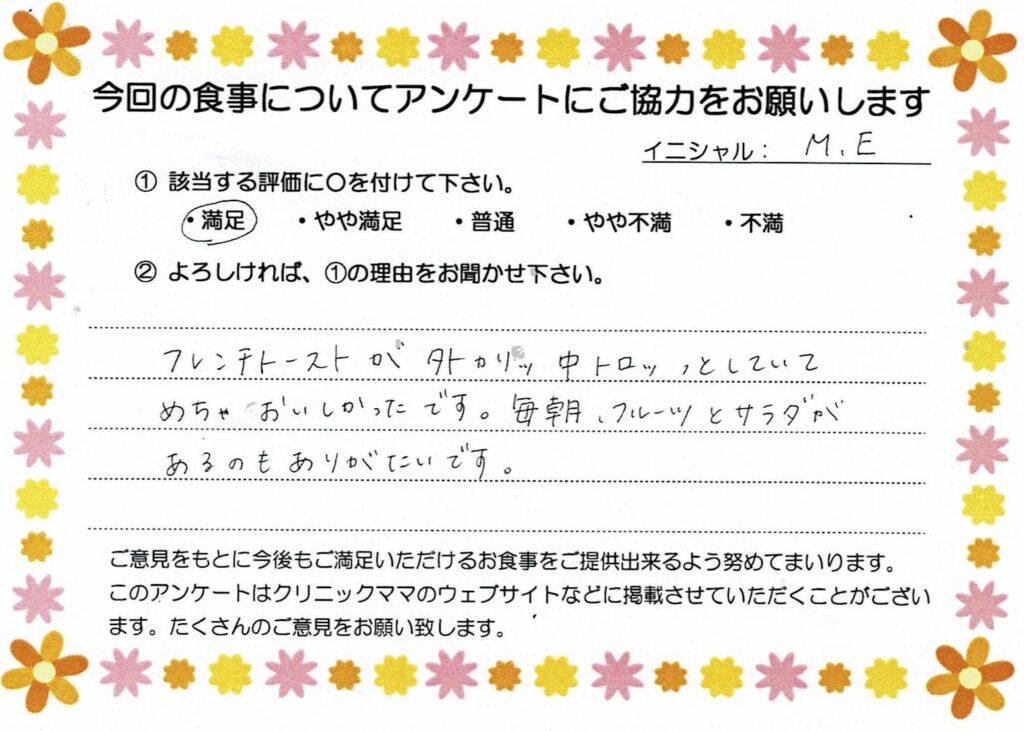 今回の食事についてアンケートにご協力をお願いします
イニシャル： M.E
① 該当する評価に〇を付けて下さい。
・満足 ・やや満足 ・普通 ・やや不満 ・不満
② よろしければ、①の理由をお聞かせ下さい。
フレンチトーストが 外カリッ 中トロッっとしていて
めちゃ おいしかったです。毎朝、フルーツとサラダが
あるのもありがたいです。
ご意見をもとに今後もご満足いただけるお食事をご提供出来るよう努めてまいります。
このアンケートはクリニックママのウェブサイトなどに掲載させていただくことがござい
ます。たくさんのご意見をお願い致します。